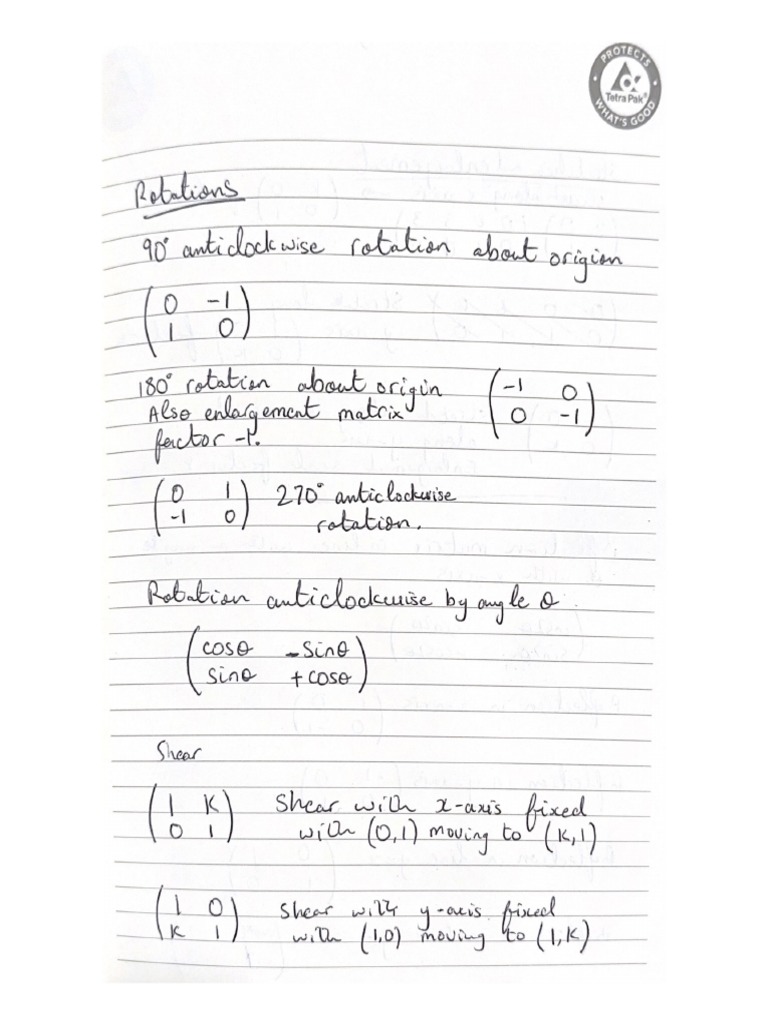 PROTECTS
Tetra Pak®
WHAT'S GOOD
Rotations
90° anticlockwise rotation about origion
( 0 -1 )
( 1 0 )
180° rotation about origin ( -1 0 )
Also enlargement matrix ( 0 -1 )
factor -1.
( 0 1 ) 270° anticlockwise
( -1 0 ) rotation.
Rotation anticlockwise by angle θ
( cosθ -sinθ )
( sinθ +cosθ )
Shear
( 1 K ) Shear with x-axis fixed
( 0 1 ) with (0,1) moving to (K,1)
( 1 0 ) Shear with y-axis fixed
( K 1 ) with (1,0) moving to (1,K)